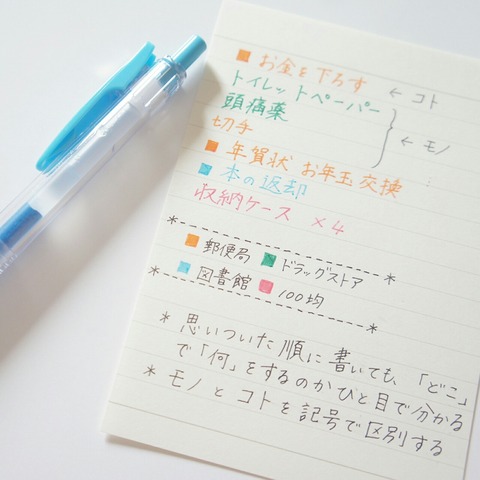 ■ お金を下ろす ← コト
トイレットペーパー
頭痛薬 ← モノ
切手
■ 年賀状 お年玉交換
■ 本の返却
収納ケース ×4
*----------------*
■ 郵便局 ■ ドラッグストア
■ 図書館 ■ 100均
*----------------*
* 思いついた順に書いても、「どこ」
で「何」をするのかひと目で分かる
* モノとコトを記号で区別する